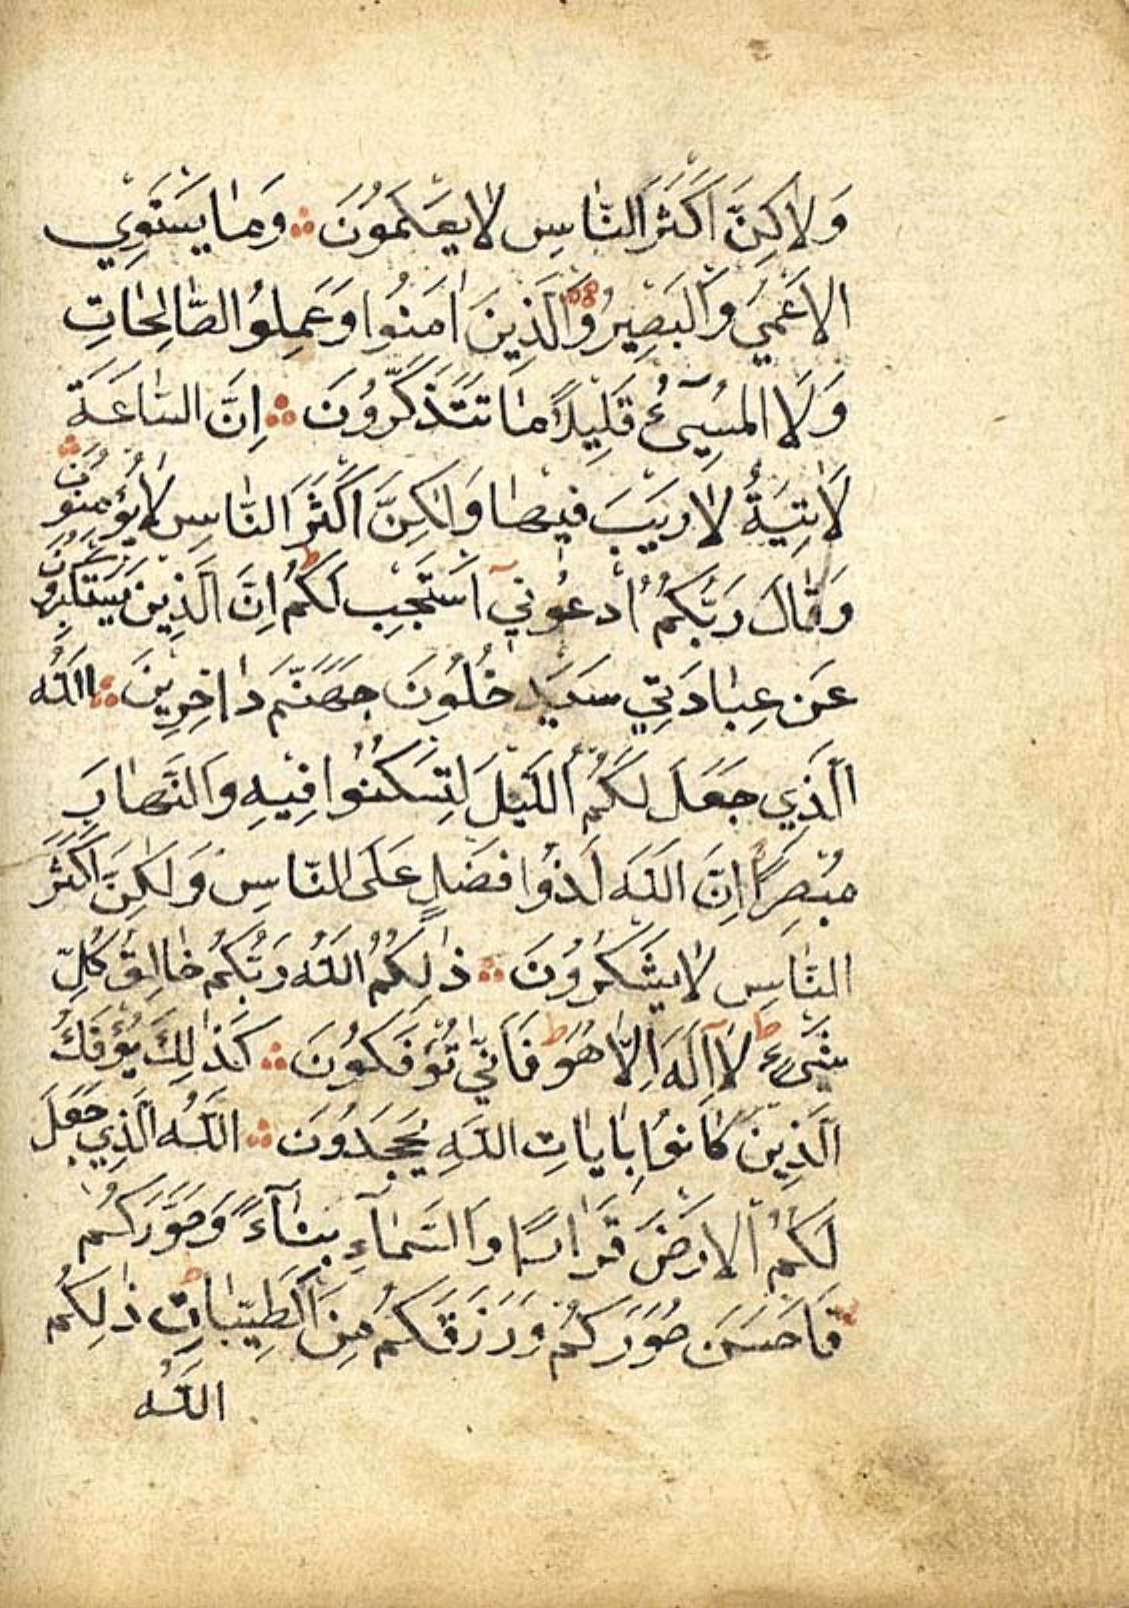 وَلاكِنَّ اَكْثَرَ النَّاسِ لايَعْلَمُونَ ۞ وَمٰا يَسْتَوِي
الاَعْمٰي وَالْبَصِيرُ وَالَّذِينَ اٰمَنُوا وَعَمِلُوا الصَّالِحَاتِ
وَلَا المُسِيٓئُ قَلِيْلاً مٰا تَتَذَكَّرُونَ ۞ اِنَّ السّٰاعَةَ
لَاٰتِيَةٌ لارَيْبَ فيْهٰا وَلٰكِنَّ اَكْثَرَ النّٰاسِ لايُؤْمِنُونَ
وَقٰالَ رَبُّكُمُ ادْعُونيٓ اَسْتَجِبْ لَكُمْ اِنَّ الَّذِينَ يَسْتَكْبِرُونَ
عَنْ عِبٰادَتِي سَيَدْخُلُونَ جَهَنَّمَ دٰاخِرِينَ ۞ اَللّٰهُ
الَّذِي جَعَلَ لَكُمُ اللَّيْلَ لِتَسْكُنُوا فِيْهِ وَالنَّهٰارَ
مُبْصِرًا اِنَّ اللّٰهَ لَذُوا فَضْلٍ عَلَى النّٰاسِ وَلٰكِنَّ اَكْثَرَ
النّٰاسِ لايَشْكُرُونَ ۞ ذٰلِكُمُ اللّٰهُ رَبُّكُمْ خٰالِقُ كُلِّ
شَيْءٍ لآٰاِلَهَ اِلّٰا هُوَ فَاَنّٰي تُؤْفَكُونَ ۞ كَذٰلِكَ يُؤْفَكُ
الَّذِينَ كٰانُوا بِاٰيٰاتِ اللّٰهِ يَجْحَدُونَ ۞ اللّٰهُ الَّذِي جَعَلَ
لَكُمُ الاَرْضَ قَرٰارًا وَالسَّمٰآءِ بِنٰآءً وَصَوَّرَكُمْ
فَاَحْسَنَ صُوَرَكُمْ وَرَزَقَكُمْ مِنَ الطَّيِّبٰاتِ ذٰلِكُمُ
اللّٰهُ